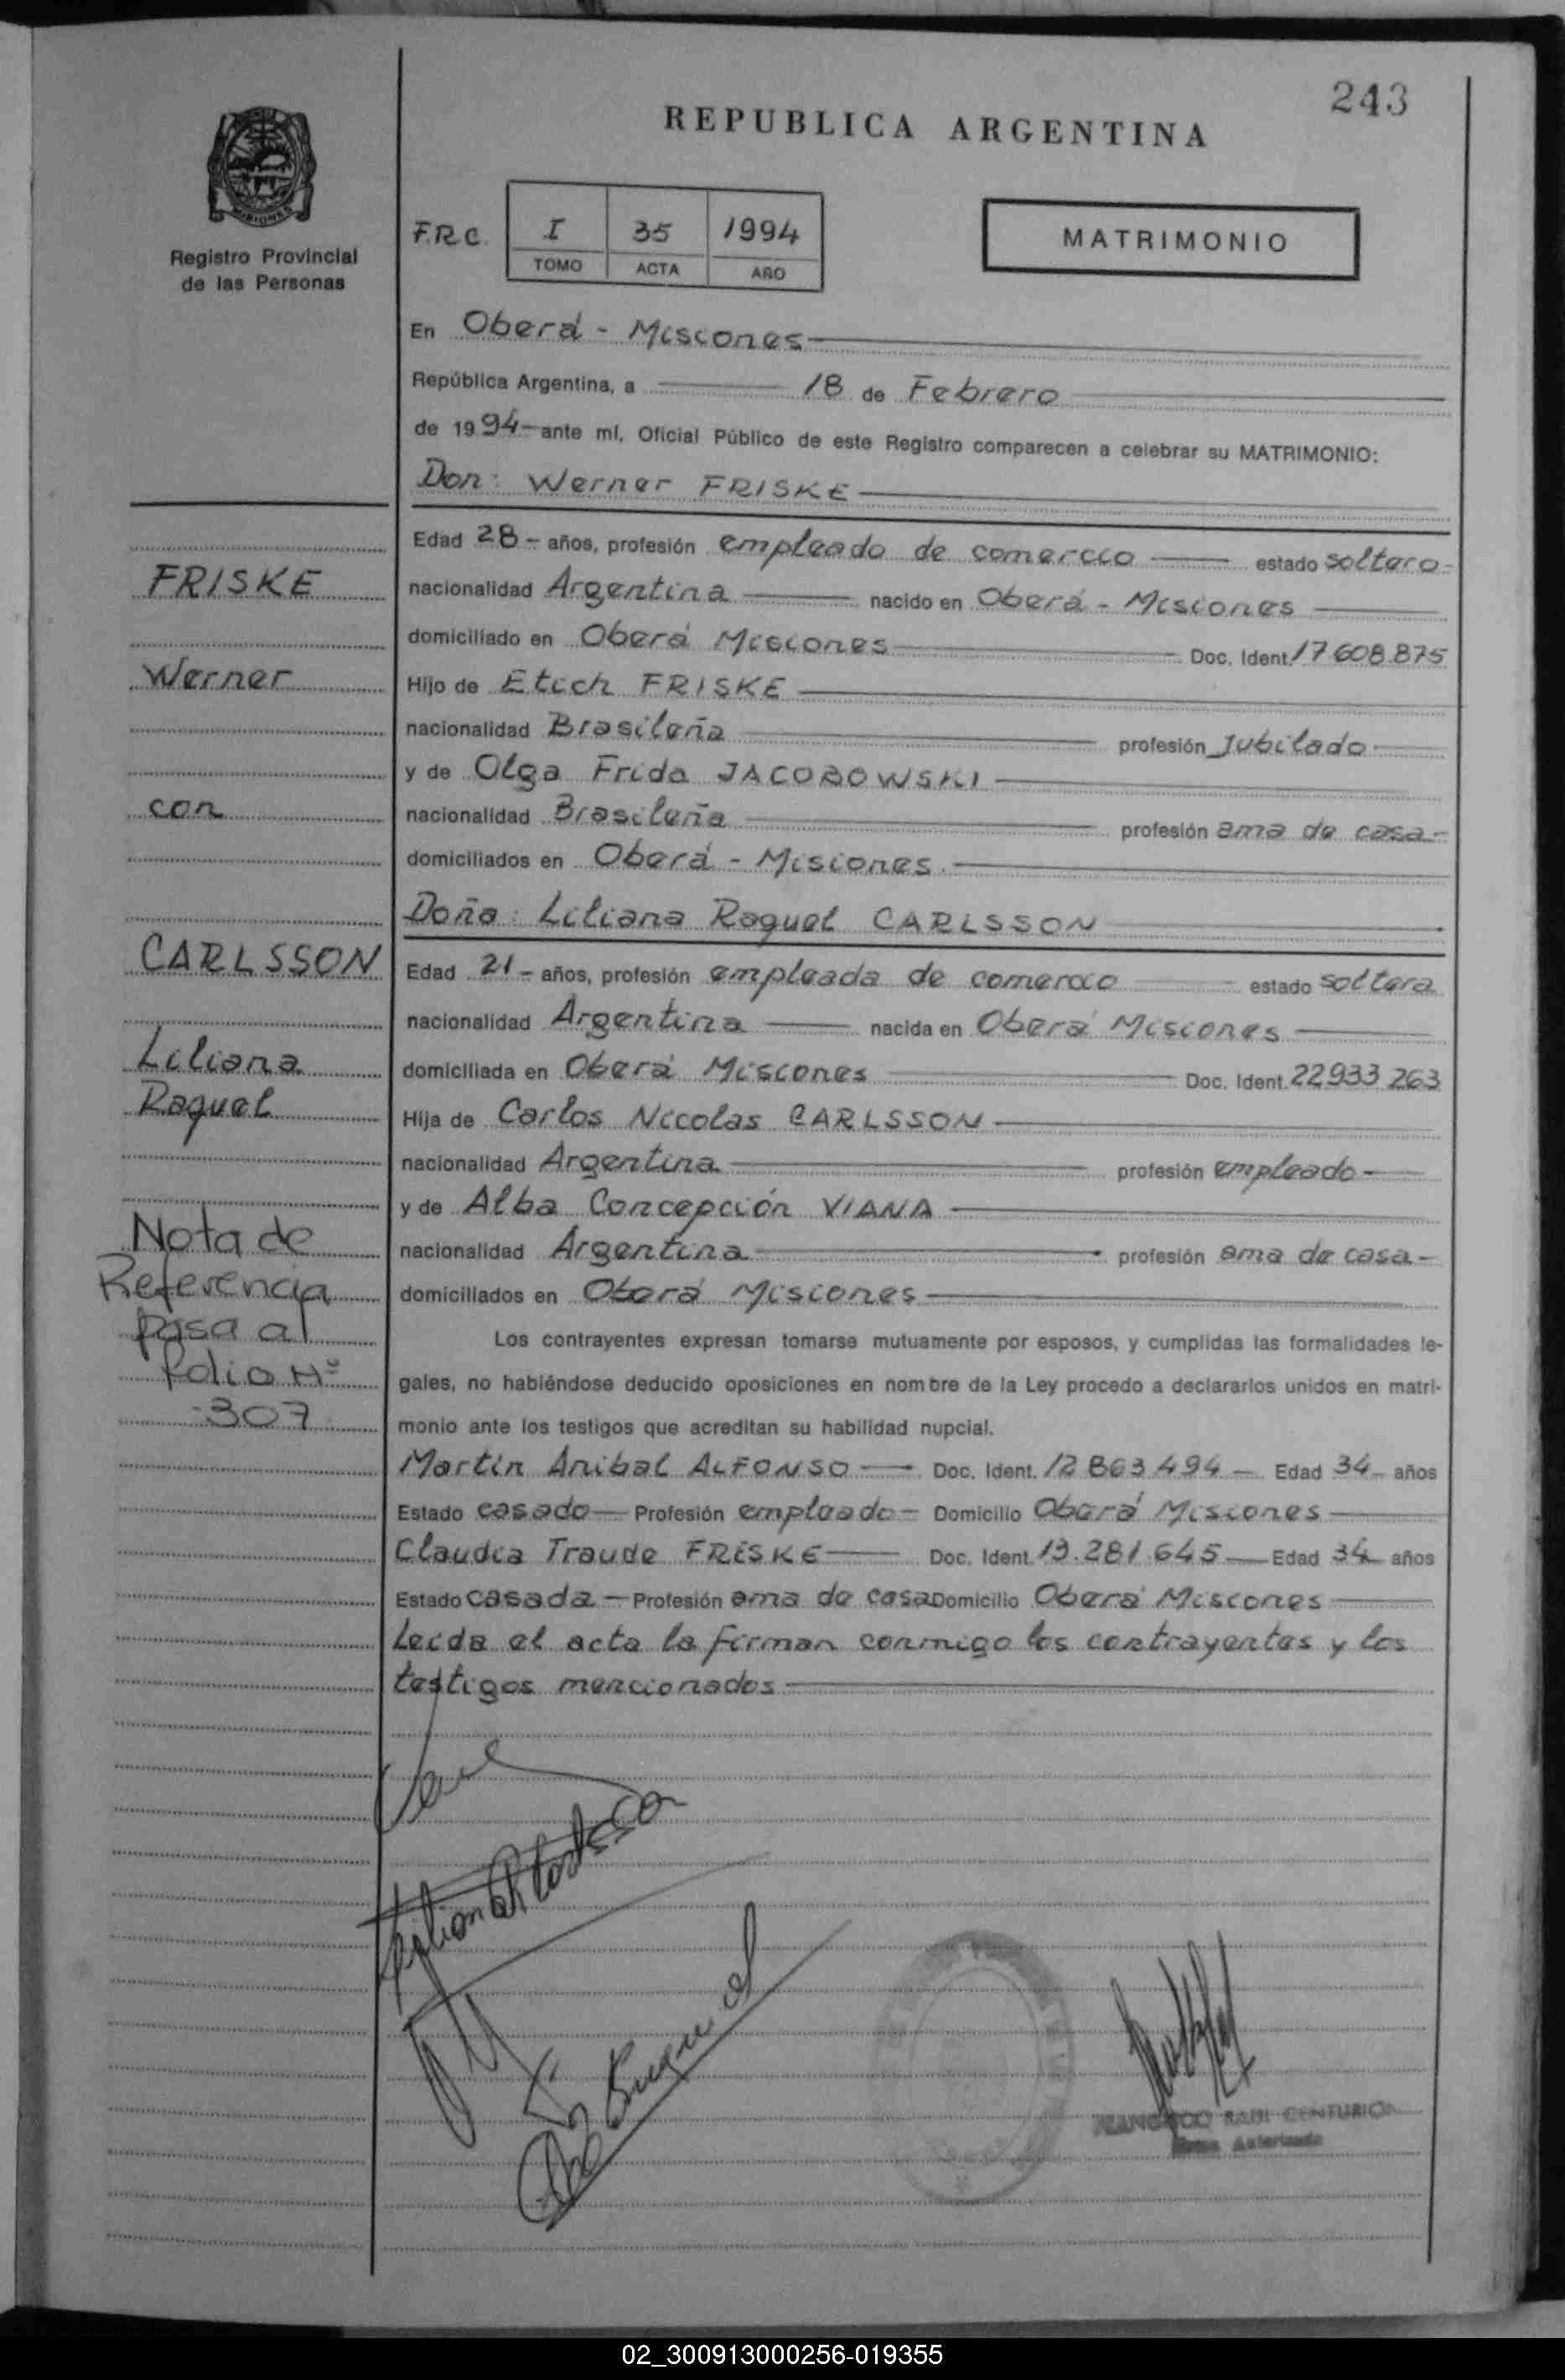 243
REPUBLICA ARGENTINA
MISIONES
Registro Provincial
de las Personas
F.R.C. I 35 1994
TOMO ACTA AÑO
MATRIMONIO
En Oberá - Misiones
República Argentina, a 18 de Febrero
de 1994 ante mí, Oficial Público de este Registro comparecen a celebrar su MATRIMONIO:
Don: Werner FRISKE
Edad 28 - años, profesión empleado de comercio estado soltero -
nacionalidad Argentina nacido en Oberá - Misiones
domiciliado en Oberá Misiones Doc. Ident. 17 608.875
Hijo de Etich FRISKE
nacionalidad Brasileña profesión Jubilado
y de Olga Frida JACOBOWSKI
nacionalidad Brasileña profesión ama de casa -
domiciliados en Oberá - Misiones.
Doña: Liliana Raquel CARLSSON
Edad 21 - años, profesión empleada de comercio estado soltera
nacionalidad Argentina nacida en Oberá Misiones
domiciliada en Oberá Misiones Doc. Ident. 22933 263
Hija de Carlos Nicolas CARLSSON
nacionalidad Argentina profesión empleado -
y de Alba Concepción VIANA
nacionalidad Argentina profesión ama de casa -
domiciliados en Oberá Misiones
Los contrayentes expresan tomarse mutuamente por esposos, y cumplidas las formalidades le-
gales, no habiéndose deducido oposiciones en nombre de la Ley procedo a declararlos unidos en matri-
monio ante los testigos que acreditan su habilidad nupcial.
Martin Anibal ALFONSO Doc. Ident. 12 863 494 - Edad 34 - años
Estado casado - Profesión empleado - Domicilio Oberá Misiones
Claudia Traude FRISKE Doc. Ident. 13.281.645 - Edad 34 años
Estado casada - Profesión ama de casa Domicilio Oberá Misiones
Leida el acta la firman conmigo los contrayentes y los
testigos mencionados
FRISKE
Werner
con
CARLSSON
Liliana
Raquel
Nota de
Referencia
pasa al
folio Nº
307
CENTURION
02_300913000256-019355